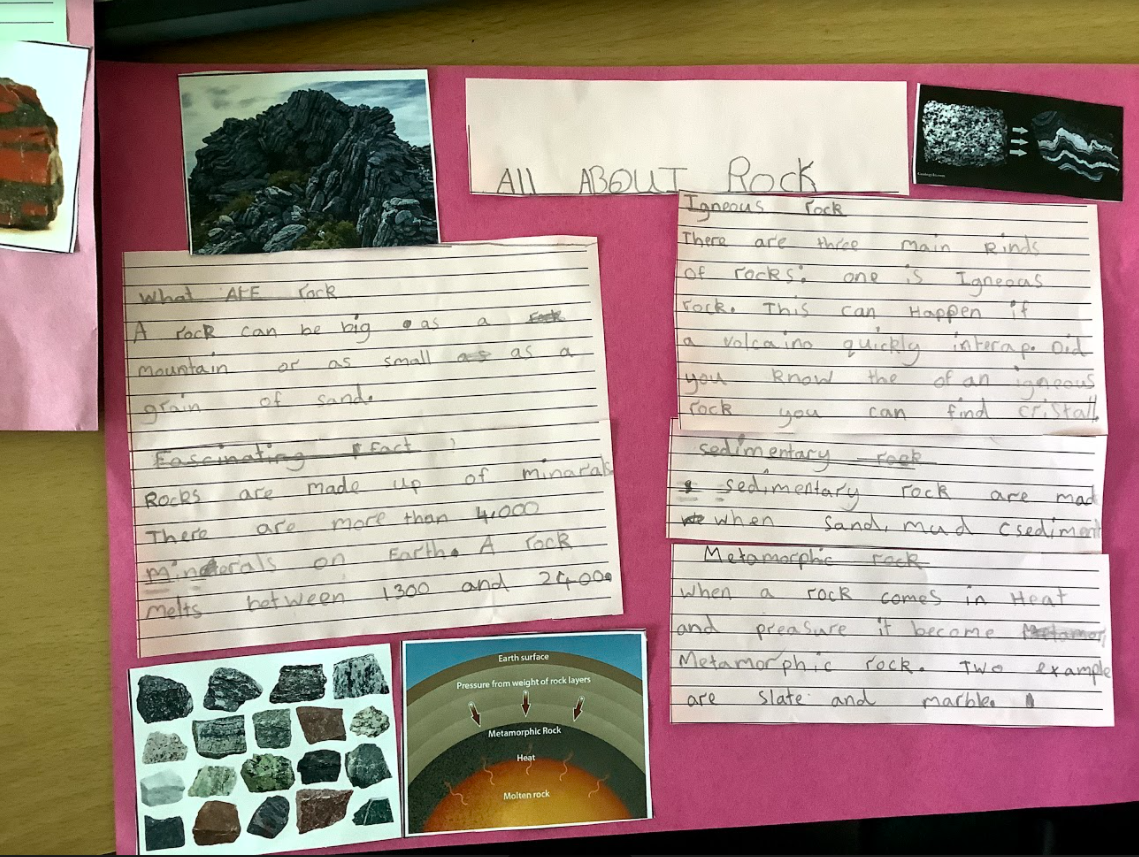 All ABOUT Rock
What ARE rock
A rock can be big as a
mountain or as small as a
grain of sand.
Fascinating Fact
Rocks are made up of minarals
There are more than 4,000
minerals on Earth. A rock
melts between 1300 and 2400.
Igneous rock
There are three main kinds
of rocks: one is Igneous
rock. This can Happen if
a volcaino quickly interap. Did
you know the of an igneous
rock you can find cristall
sedimentary rock
sedimentary rock are mad
when sand, mud (sediment
Metamorphic rock
when a rock comes in Heat
and preasure it become Metamor
Metamorphic rock. Two example
are slate and marble.
Earth surface
Pressure from weight of rock layers
Metamorphic Rock
Heat
Molten rock